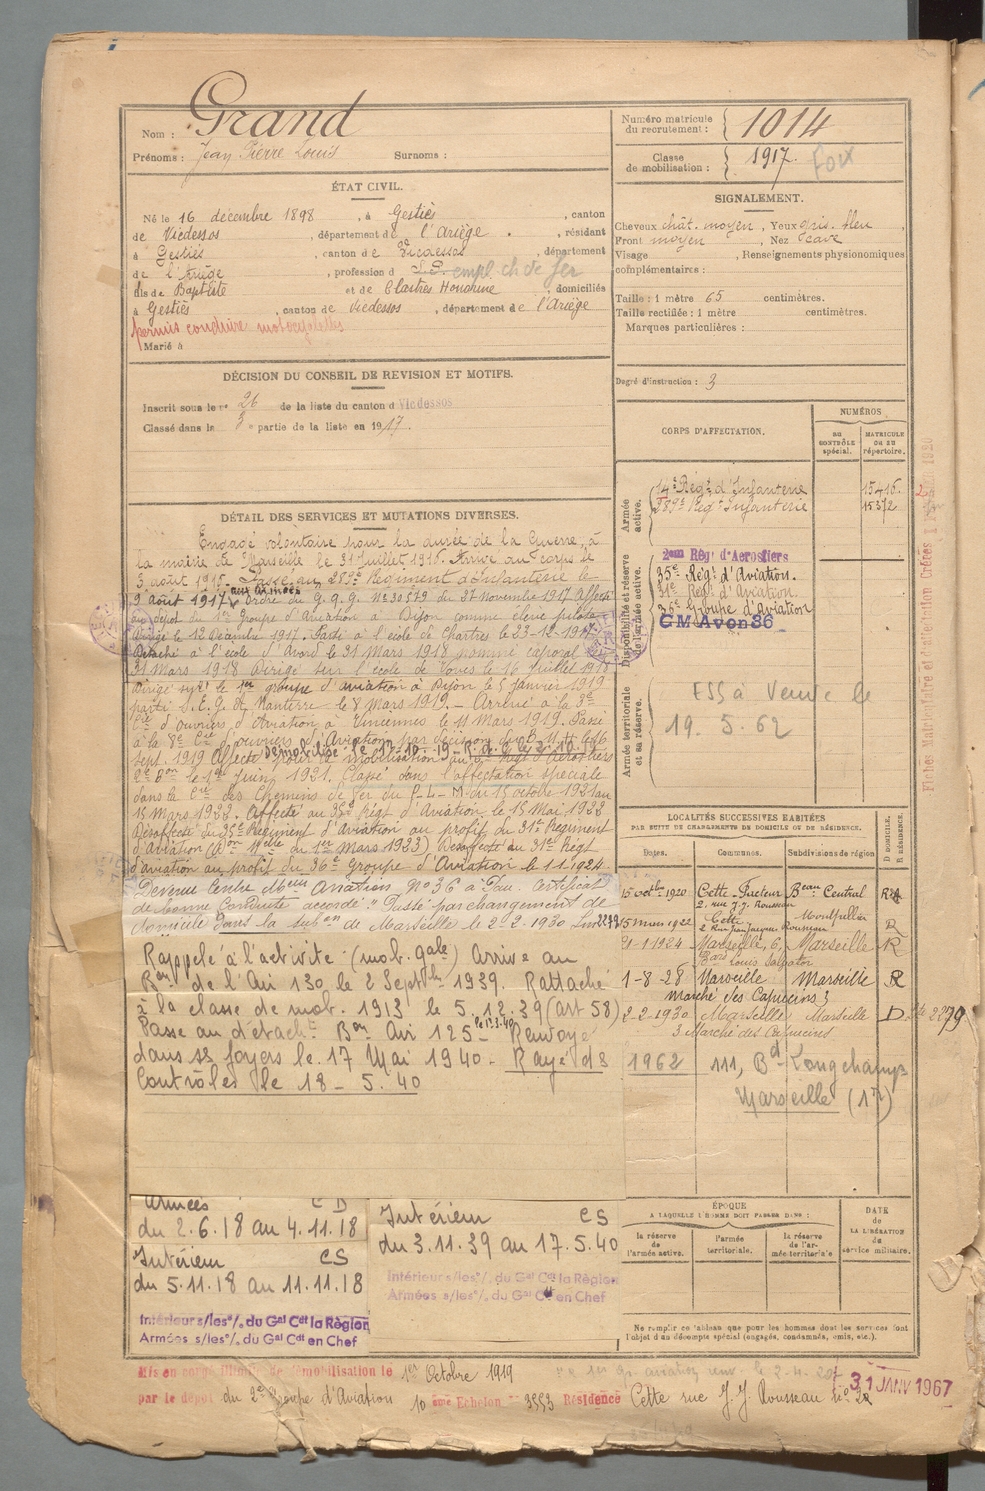 Nom : Grand
Prénoms : Jean Pierre Louis Surnoms :
Numéro matricule du recrutement : 1014
Classe de mobilisation : 1917. Foix
ÉTAT CIVIL.
Né le 16 décembre 1898, à Gestiès, canton
de Vicdessos, département de l'Ariège, résidant
à Gestiès, canton de Vicdessos, département
de l'Ariège, profession d empl. ch. de fer
fils de Baptiste et de Claitres Honorine, domiciliés
à Gestiès, canton de Vicdessos, département de l'Ariège
permis conduire motocyclettes
Marié à
SIGNALEMENT.
Cheveux chât. moyen, Yeux gris. bleu
Front moyen, Nez cave
Visage , Renseignements physionomiques
complémentaires :
Taille : 1 mètre 65 centimètres.
Taille rectifiée : 1 mètre centimètres.
Marques particulières :
Degré d'instruction : 3
DÉCISION DU CONSEIL DE REVISION ET MOTIFS.
Inscrit sous le n° 26 de la liste du canton d Vicdessos
Classé dans la 3e partie de la liste en 1917.
CORPS D'AFFECTATION.
NUMÉROS
DU CONTRÔLE spécial.
MATRICULE OU AU répertoire.
Armée active.
14e Régt d'Infanterie 15416.
283e Régt Infanterie 15372
Disponibilité et réserve de l'armée active.
2eme Régt d'Aerostiers
35e Régt d'Aviation.
31e Régt d'Aviation.
36e Groupe d'aviation
CM Avon 36
Armée territoriale et sa réserve.
ESS à Venve le
19.5.62
DÉTAIL DES SERVICES ET MUTATIONS DIVERSES.
Engagé volontaire pour la durée de la Guerre, à
la mairie de Marseille le 31 Juillet 1916. Arrivé au corps le
3 août 1916. Passé au 283e Régiment d'Infanterie le
9 août 1917 aux Armées Ordre du G.Q.G. No 30579 du 27 novembre 1917 Affecté
au dépôt du 1er Groupe d'Aviation à Dijon comme élève pilote
Dirigé le 12 Décembre 1917. Passé à l'école de Chartres le 23-12-1917
Détaché à l'école d'Avord le 31 Mars 1918 nommé caporal le
31 Mars 1918 Dirigé sur l'école de Voves le 16 Juillet 1918
Dirigé sur le 1er groupe d'aviation à Dijon le 5 Janvier 1919
parti S.E.G. de Nanterre le 8 Mars 1919. Arrivé à la 3e
Cie d'ouvriers d'Aviation à Vincennes le 11 Mars 1919. Passé
à la 8e Cie d'ouvriers d'Aviation par décision du B.M. le 16
sept. 1919 Démobilisé le 17-10-19 Affecté pour la mobilisation au 2e Régt d'Aérostiers
2e Bon le 1er Juin 1921. Classé dans l'affectation spéciale
dans la Cie des Chemins de fer du P-L-M du 15 octobre 1921 au
15 Mars 1922. Affecté au 35e Régt d'Aviation le 15 Mai 1922
Désaffecté du 35e Régiment d'Aviation au profit du 31e Régiment
d'Aviation (Aon nelle du 1er Mars 1923) Désaffecté du 31e Régt
d'aviation au profit du 36e Groupe d'Aviation le 1.1.1924
Devenu Centre Meurs Aviation No 36 à Pau. Certificat
de bonne Conduite accordé. Passé par changement de
domicile dans la subon de Marseille le 2-2-1930
Rappelé à l'activité (mob. gale) Arrivé au
Bon de l'Air 130 le 2 Septbre 1939. Rattaché
à la classe de mob. 1913 le 5.12.39 (art 58)
Passe au détacht Bon Air 125 le 1.3.40 Renvoyé
dans ses foyers le 17 Mai 1940 - Rayé des
Contrôles le 18-5.40
LOCALITÉS SUCCESSIVES HABITÉES
PAR SUITE DE CHANGEMENTS DE DOMICILE OU DE RÉSIDENCE.
Dates. Communes. Subdivisions de région D DOMICILE. R RÉSIDENCE.
15 octbre 1920 Cette - Facteur Beau Central R
2. rue J.J. Rousseau
15 mars 1922 Cette Montpellier R
2 Rue Jean Jacques Rousseau
21-1-1924 Marseille, 6, Marseille R
Bard Louis Salvator
1-8-28 Marseille Marseille R
marché des Capucins 3
2-2-1930 Marseille Marseille D 2279
3 Marché des Capucins
1962 111, Bd Longchamp
Marseille (1er)
Armées CD
du 2.6.18 au 4.11.18
Intérieur CS
du 5.11.18 au 11.11.18
Intérieur s/les o/. du Gal Cdt la Région
Armées s/les o/. du Gal Cdt en Chef
Intérieur CS
du 3.11.39 au 17.5.40
Intérieur s/les o/. du Gal Cdt la Région
Armées s/les o/. du Gal Cdt en Chef
ÉPOQUE
A LAQUELLE L'HOMME DOIT PASSER DANS :
la réserve de l'armée active.
l'armée territoriale.
la réserve de l'armée territoriale
DATE de LA LIBÉRATION du service militaire.
Ne remplir ce tableau que pour les hommes dont les services font
l'objet d'un décompte spécial (engagés, condamnés, omis, etc.).
Mis en congé illimité de démobilisation le 1er Octobre 1919
par le dépôt du 2e Groupe d'Aviation 10 eme Echelon No 3553 Résidence Cette rue J.J. Rousseau no 2
31 JANV 1967
Fiches Matriculaire et d'affection Créées 1920